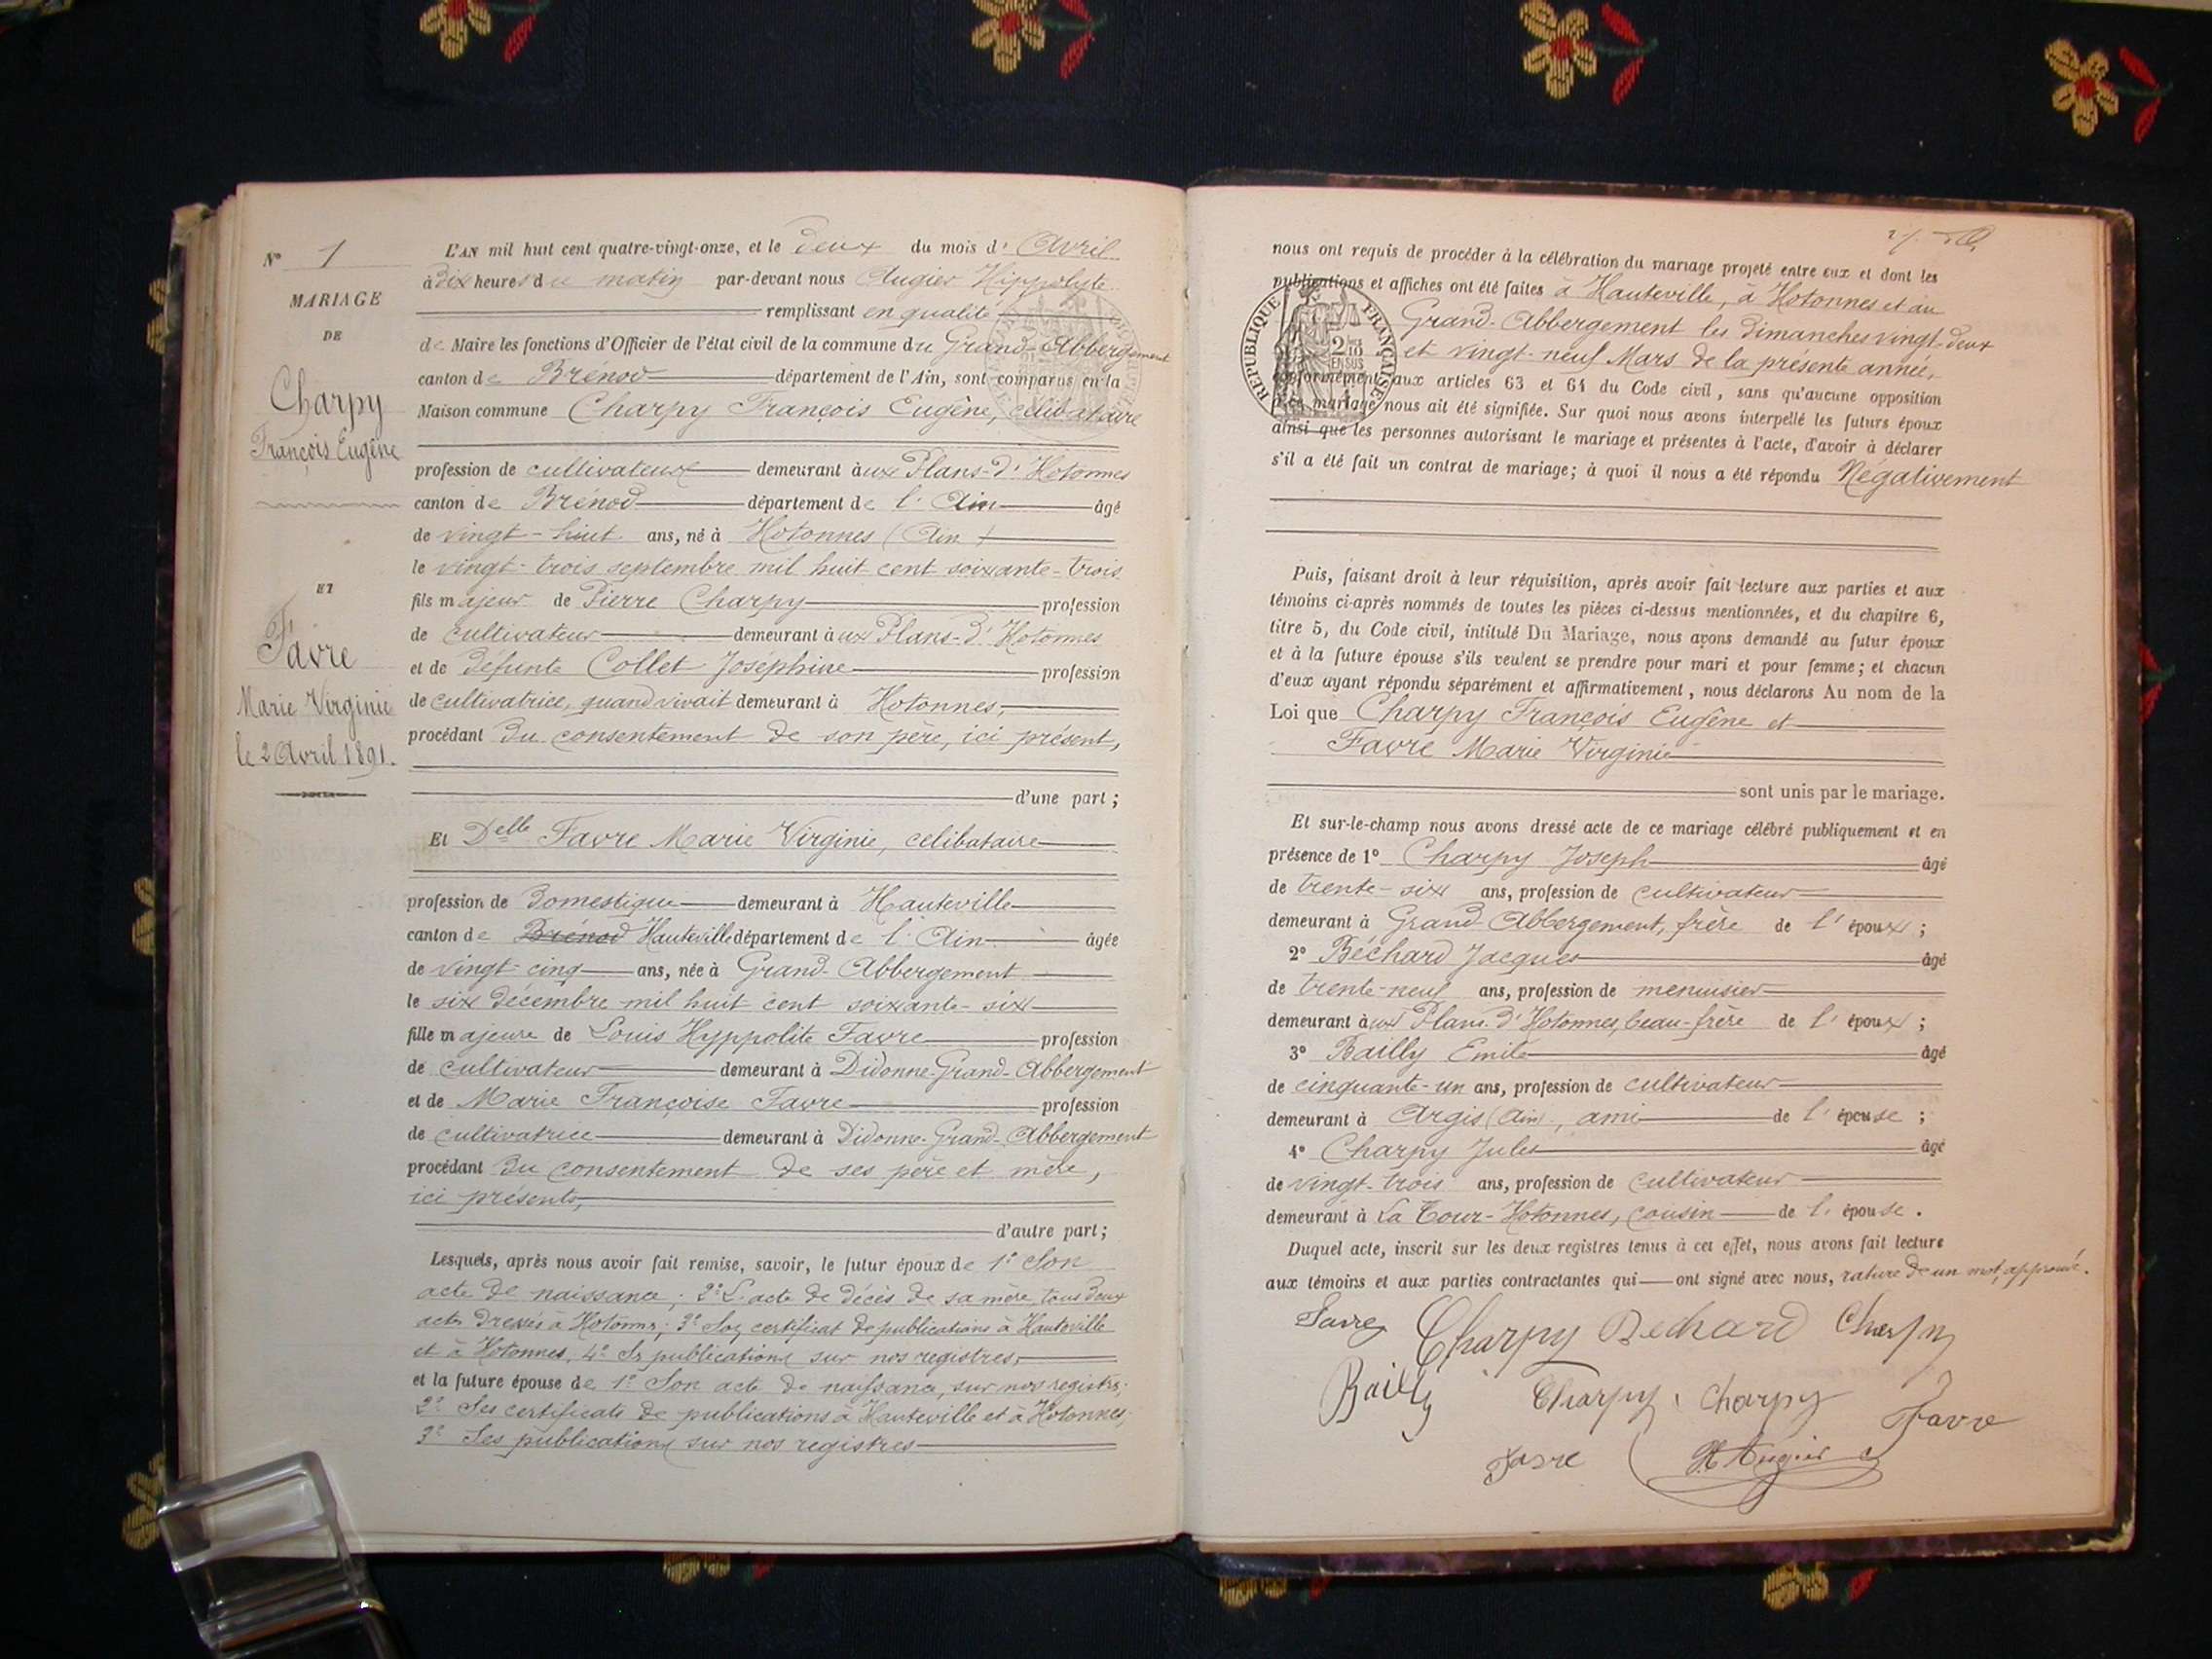 N° 1
MARIAGE
DE
Charpy
François Eugène
ET
Favre
Marie Virginie
le 2 Avril 1891.
L'AN mil huit cent quatre-vingt-onze, et le deux du mois d' Avril
à dix heures du matin par-devant nous Augier Hippolyte
remplissant en qualité
de Maire les fonctions d'Officier de l'état civil de la commune du Grand-Abbergement
canton de Brénod département de l'Ain, sont comparus en la
Maison commune Charpy François Eugène, célibataire
profession de cultivateur demeurant aux Plans-d'Hotonnes
canton de Brénod département de l'Ain âgé
de vingt-huit ans, né à Hotonnes (Ain)
le vingt-trois septembre mil huit cent soixante-trois
fils majeur de Pierre Charpy profession
de cultivateur demeurant aux Plans-d'Hotonnes
et de défunte Collet Joséphine profession
de cultivatrice, quand vivait demeurant à Hotonnes,
procédant du consentement de son père, ici présent,
d'une part;
Et Delle Favre Marie Virginie, célibataire
profession de Domestique demeurant à Hauteville
canton de Brénod Hauteville département de l'Ain âgée
de vingt-cinq ans, née à Grand-Abbergement
le six décembre mil huit cent soixante-six
fille majeure de Louis Hyppolite Favre profession
de cultivateur demeurant à Didonne-Grand-Abbergement
et de Marie Françoise Favre profession
de cultivatrice demeurant à Didonne-Grand-Abbergement
procédant du consentement de ses père et mère,
ici présents,
d'autre part;
Lesquels, après nous avoir fait remise, savoir, le futur époux de 1° Son
acte de naissance; 2° L'acte de décès de sa mère, tous deux
actes dressés à Hotonnes; 3° Son certificat de publications à Hauteville
et à Hotonnes, 4° Ses publications sur nos registres,
et la future épouse de 1° Son acte de naissance, sur nos registres;
2° Ses certificats de publications à Hauteville et à Hotonnes;
3° Ses publications sur nos registres
nous ont requis de procéder à la célébration du mariage projeté entre eux et dont les
publications et affiches ont été faites à Hauteville, à Hotonnes et au
Grand-Abbergement les dimanches vingt-deux
et vingt-neuf Mars de la présente année,
conformément aux articles 63 et 64 du Code civil, sans qu'aucune opposition
à ce mariage nous ait été signifiée. Sur quoi nous avons interpellé les futurs époux
ainsi que les personnes autorisant le mariage et présentes à l'acte, d'avoir à déclarer
s'il a été fait un contrat de mariage; à quoi il nous a été répondu Négativement
RÉPUBLIQUE FRANÇAISE
2 10
EN SUS
Puis, faisant droit à leur réquisition, après avoir fait lecture aux parties et aux
témoins ci-après nommés de toutes les pièces ci-dessus mentionnées, et du chapitre 6,
titre 5, du Code civil, intitulé Du Mariage, nous avons demandé au futur époux
et à la future épouse s'ils veulent se prendre pour mari et pour femme; et chacun
d'eux ayant répondu séparément et affirmativement, nous déclarons Au nom de la
Loi que Charpy François Eugène et
Favre Marie Virginie
sont unis par le mariage.
Et sur-le-champ nous avons dressé acte de ce mariage célébré publiquement et en
présence de 1° Charpy Joseph âgé
de trente-six ans, profession de cultivateur
demeurant à Grand-Abbergement, frère de l'époux;
2° Béchard Jacques âgé
de trente-neuf ans, profession de menuisier
demeurant aux Plans-d'Hotonnes, beau-frère de l'époux;
3° Bailly Emile âgé
de cinquante-un ans, profession de cultivateur
demeurant à Argis (Ain), ami de l'épouse;
4° Charpy Jules âgé
de vingt-trois ans, profession de cultivateur
demeurant à La Tour-Hotonnes, cousin de l'épouse.
Duquel acte, inscrit sur les deux registres tenus à cet effet, nous avons fait lecture
aux témoins et aux parties contractantes qui ont signé avec nous, rature de un mot, approuvé.
Favre Charpy Bechard Charpy
Bailly Charpy Charpy Favre
Favre H Augier